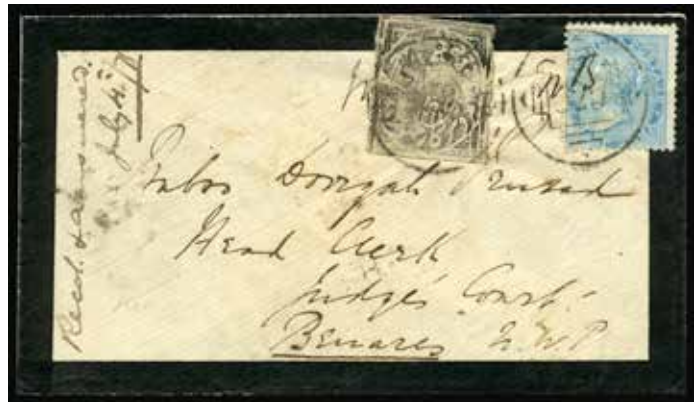 Recd. & answered.
July 4.
Baboo Doorgah Prusad
Head Clerk
Judge's Court.
Benares N.W.P